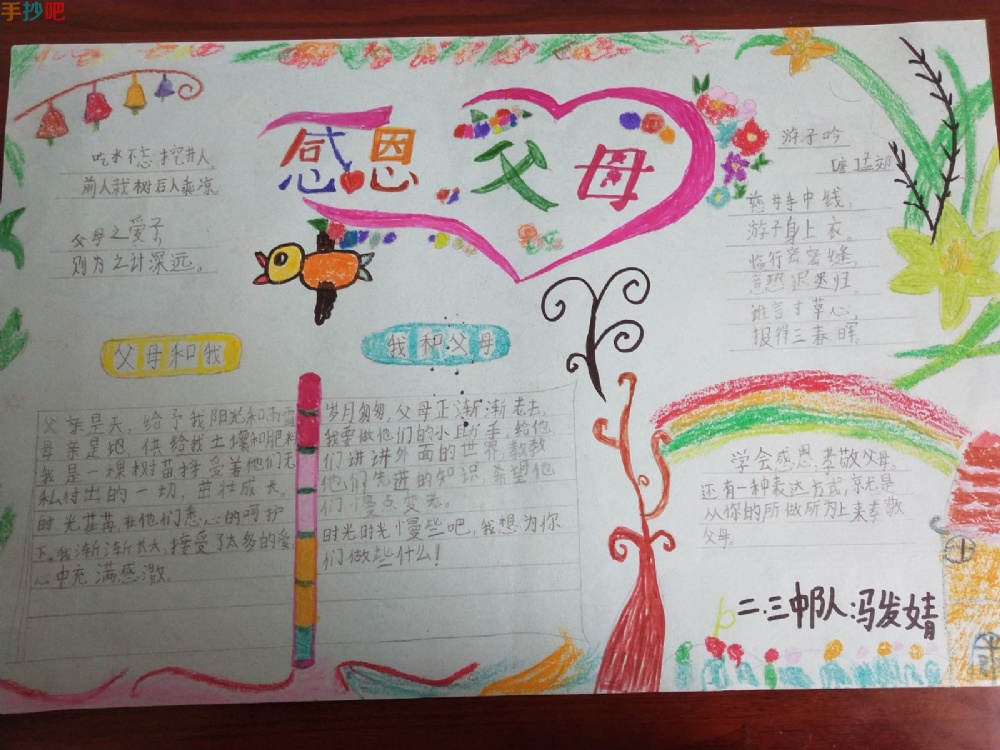 手抄吧
感恩父母
吃水不忘挖井人,
前人栽树后人乘凉
父母之爱子,
则为之计深远。
游子吟
唐 孟郊
慈母手中线,
游子身上衣。
临行密密缝,
意恐迟迟归。
谁言寸草心,
报得三春晖。
父母和我
父亲是天,给予我阳光和雨露
母亲是地,供给我土壤和肥料
我是一棵树苗,接受着他们无
私付出的一切,茁壮成长。
时光荏苒,在他们悉心的呵护
下。我渐渐长大,接受了太多的爱,
心中充满感激。
我和父母
岁月匆匆,父母正渐渐老去,
我要做他们的小助手,给他
们讲讲外面的世界,教教
他们先进的知识,希望他
们慢点变老。
时光时光慢些吧,我想为你
们做些什么!
学会感恩,孝敬父母。
还有一种表达方式,就是
从你的所做所为上来孝敬
父母。
二.三中队:冯发婧